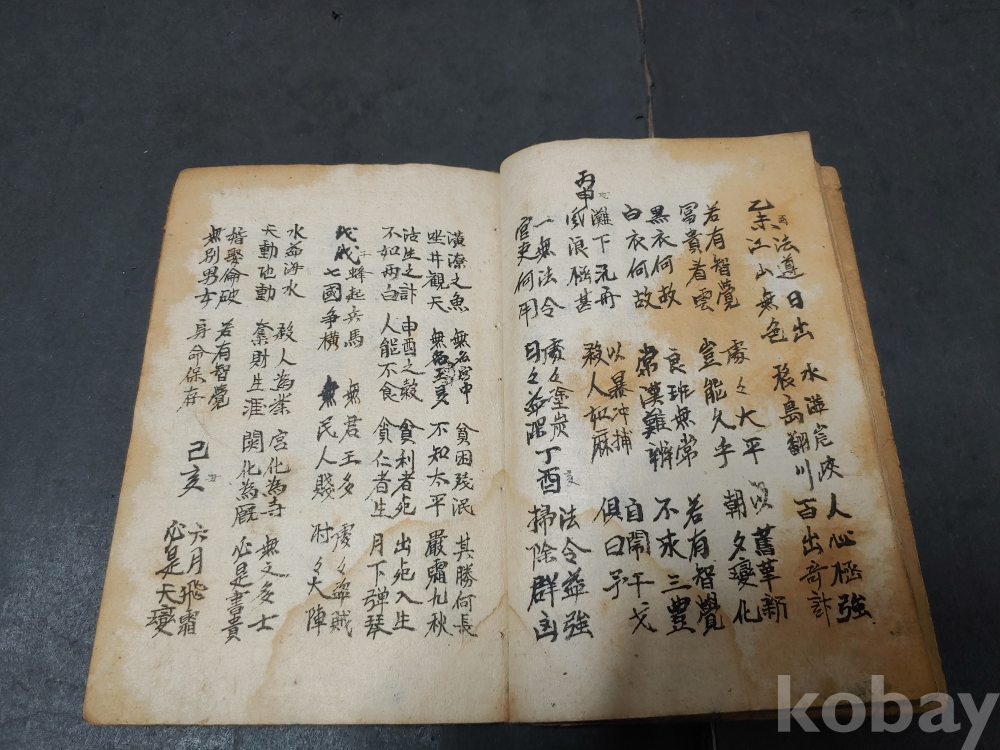 乙未 法遵日出 水 人心極強
江山無色 島翻川 百出奇詐
若有智覺 處々大平 以舊革新
冨貴者雲 豈能久乎 朝夕變化
黑衣何故 良班無常 若有智覺
白衣何故 常漢難辨 不求三豊
丙申 灘下沉舟 以暴冲捕 自鬧干戈
風浪極甚 殺人如麻 俱曰
一無法令 處々塗炭 丁酉 法令益強
官吏何用 日々益深 掃除群凶
潢潦之魚 無名中 貧困残泯 其勝何長
坐井觀天 無 不知太平 嚴霜九秋
沽生之計 申酉之穀 貪利者死 出死入生
不如两白 人能不食 貪仁者生 月下弾琴
戊戌 蜂起兵馬 無君王多 處々盗賊
七國争横 無民人賤 時々大陣
水益海水 殺人為業 宮化為寺 無文多士
天動地動 奪財生涯 闕化為厩 必是書貴
聚倫破 若有智覺 己亥 六月飛霜
無別男女 身命保存 必是天變
kobay